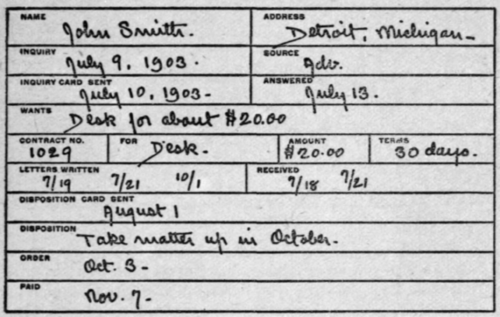 NAME John Smith. ADDRESS Detroit, Michigan-
INQUIRY July 9, 1903. SOURCE Adv.
INQUIRY CARD SENT July 10, 1903- ANSWERED July 13.
WANTS Desk for about $20.00
CONTRACT NO. 1029 FOR Desk. AMOUNT $20.00 TERMS 30 days.
LETTERS WRITTEN 7/19 7/21 10/1 RECEIVED 7/18 7/21
DISPOSITION CARD SENT August 1
DISPOSITION Take matter up in October-
ORDER Oct. 3-
PAID Nov. 7-